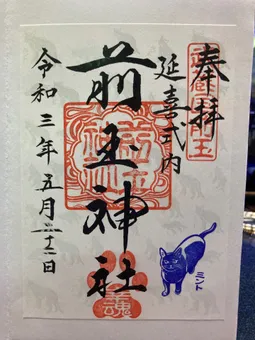 奉拝
延喜式内
前玉神社
令和三年五月二十二日
ミント
魂